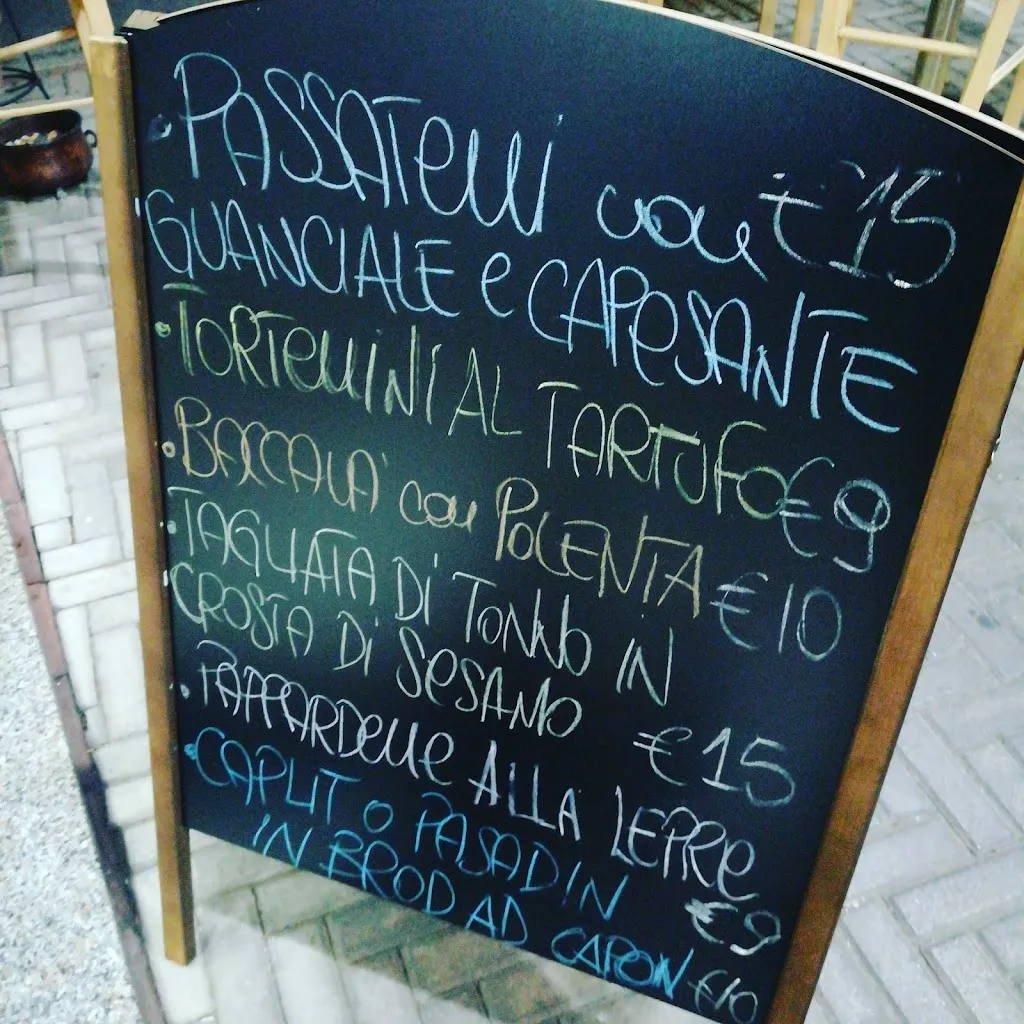 • PASSATELLI CON €15
GUANCIALE e CAPESANTE
• TORTELLINI AL TARTUFO €9
• BACCALA' CON POLENTA €10
• TAGLIATA DI TONNO IN
CROSTA DI SESAMO €15
• PAPPARDELLE ALLA LEPRE €9
• CAPLIT O PASADIN
IN BROD AD CAPON €10